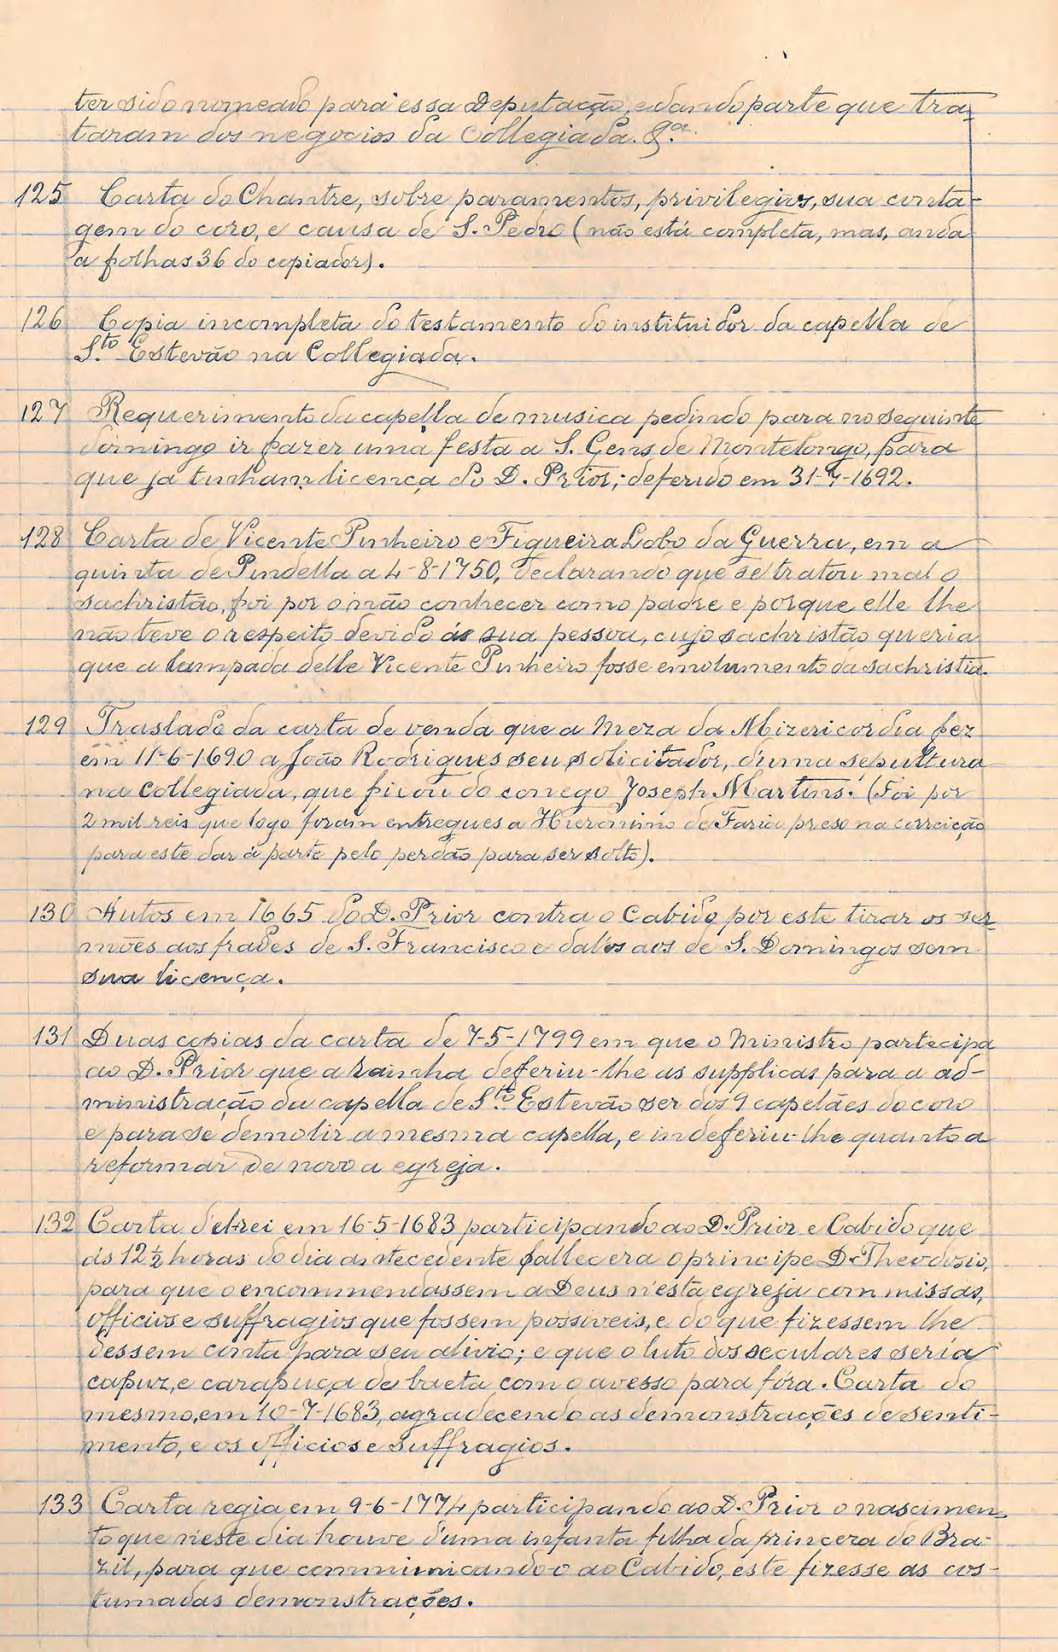 ter sido nomeado para essa Deputação, e dando parte que tra-
taram dos negocios da Collegiada.
125 Carta do Chantre, sobre paramentos, privilegios, sua conta-
gem do coro, e causa de S. Pedro (não está completa, mas, anda
a folhas 36 do copiador).
126 Copia incompleta do testamento do instituidor da capella de
S.to Estevão na Collegiada.
127 Requerimento da capella de musica pedindo para no seguinte
domingo ir fazer uma festa a S. Gens, de Montelongo, para
que ja tinham licença do D. Prior; deferido em 31-7-1692.
128 Carta de Vicente Pinheiro e Figueira Lobo da Guerra, em a
quinta de Pindella a 4-8-1750, declarando que se tratou mal o
sachristão, foi por o não conhecer como padre e porque elle lhe
não teve o respeito devido ás sua pessoa, cujo sachristão queria
que a lampada delle Vicente Pinheiro fosse emolumento da sachristia.
129 Traslado da carta de venda que a Meza da Mizericordia fez
em 11-6-1690 a João Rodrigues seu solicitador, d'uma sepultura
na Collegiada, que ficou do conego Joseph Martins. (Foi por
2 mil reis que logo foram entregues a Hieronimo de Faria preso na correição
para este dar á parte pelo perdão para ser solto).
130 Autos em 1665 do D. Prior contra o Cabido por este tirar os ser-
mões aos frades de S. Francisco e dal'os aos de S. Domingos sem
sua licença.
131 Duas copias da carta de 7-5-1799 em que o Ministro partecipa
ao D. Prior que a rainha deferiu-lhe as supplicas para a ad-
ministração da capella de S.to Estevão ser dos 9 capelães do coro
e para se demolir a mesma capella, e indeferiu-lhe quanto a
reformar de novo a egreja.
132 Carta d'el-rei em 16-5-1683 participando ao D. Prior e Cabido que
ás 12½ horas do dia antecedente fallecera o principe D. Theodosio,
para que o encommendassem a Deus n'esta egreja com missas,
officios e suffragios que fossem possiveis, e do que fizessem lhe
dessem conta para seu alivio; e que o luto dos seculares seria
capuz, e carapuça de baeta com o avesso para fóra. Carta do
mesmo, em 10-7-1683, agradecendo as demonstrações de senti-
mento, e os officios e suffragios.
133 Carta regia em 9-6-1774 participando ao D. Prior o nascimen-
to que neste dia houve d'uma infanta filha da princeza do Bra-
zil, para que communicando-o ao Cabido, este fizesse as cos-
tumadas demonstrações.